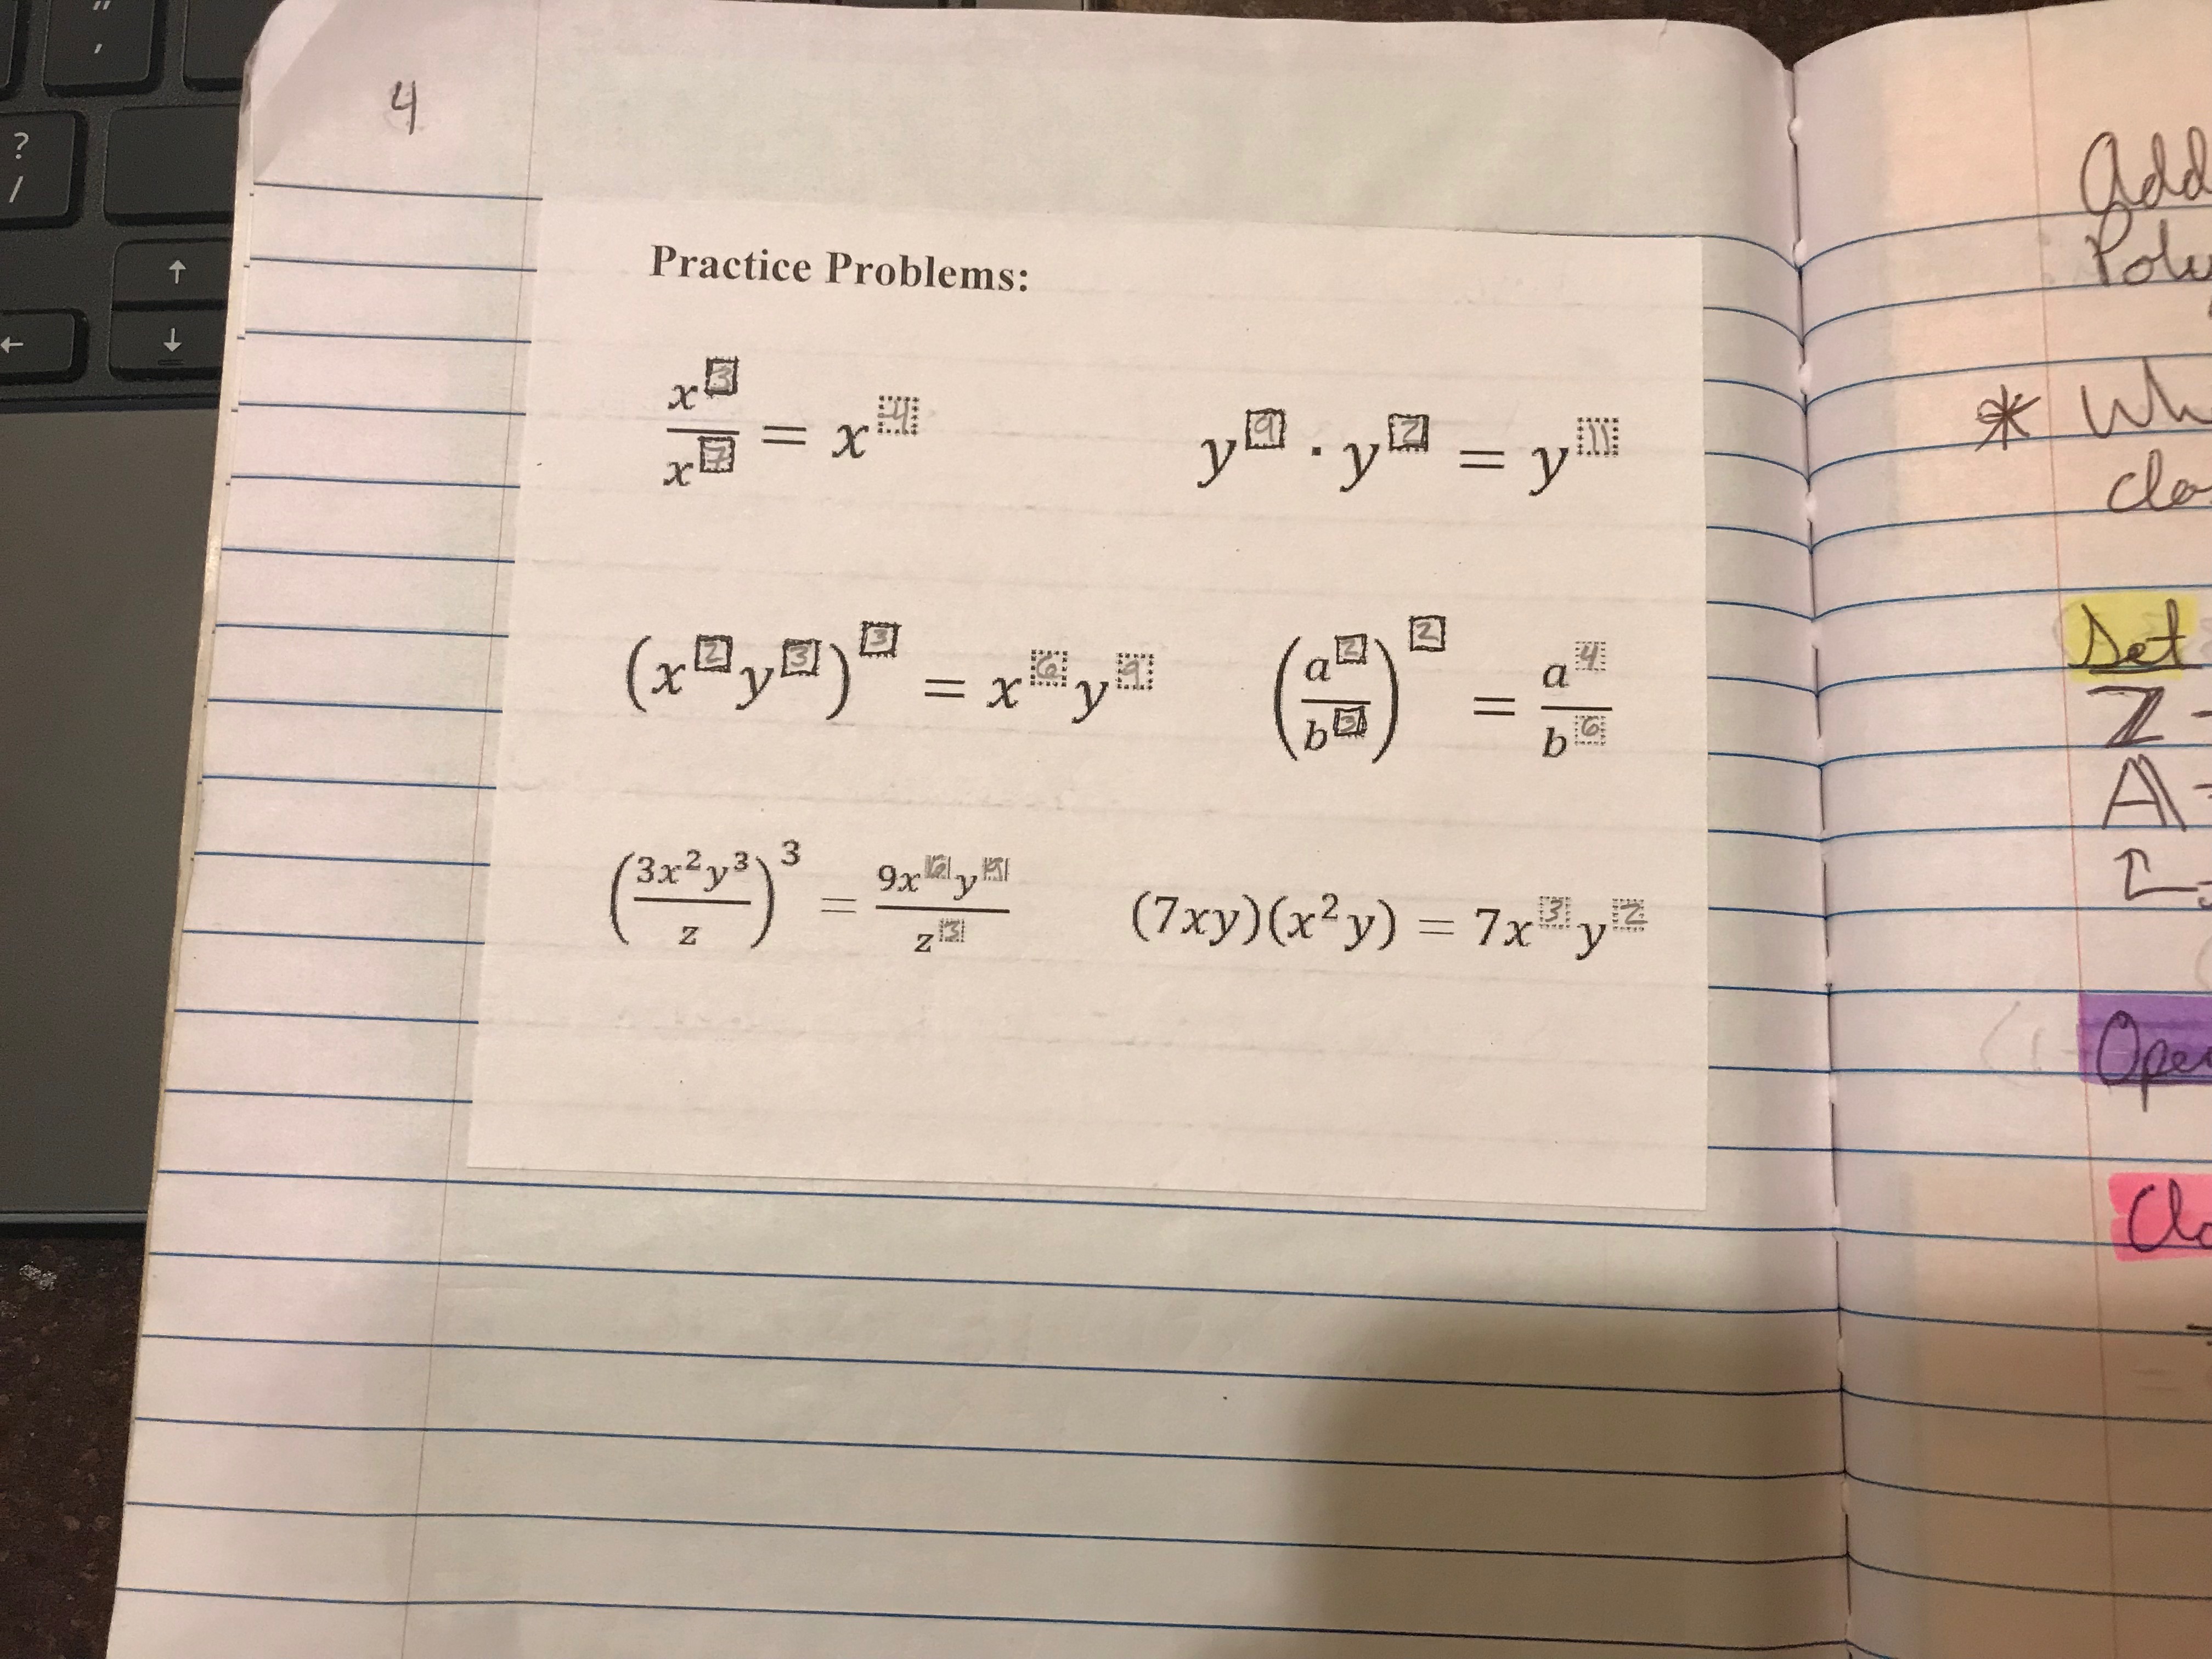 4
Practice Problems:
x^3/x^7 = x^-4    y^9 · y^2 = y^11
(x^2 y^3)^3 = x^6 y^9    (a^2/b^3)^2 = a^4/b^6
(3x^2y^3/z)^3 = 9x y /z^3    (7xy)(x^2y) = 7x^3 y^2
Add
Poly
* Wh
Clo
Det
Z -
A -
Ope
Clo
?
/